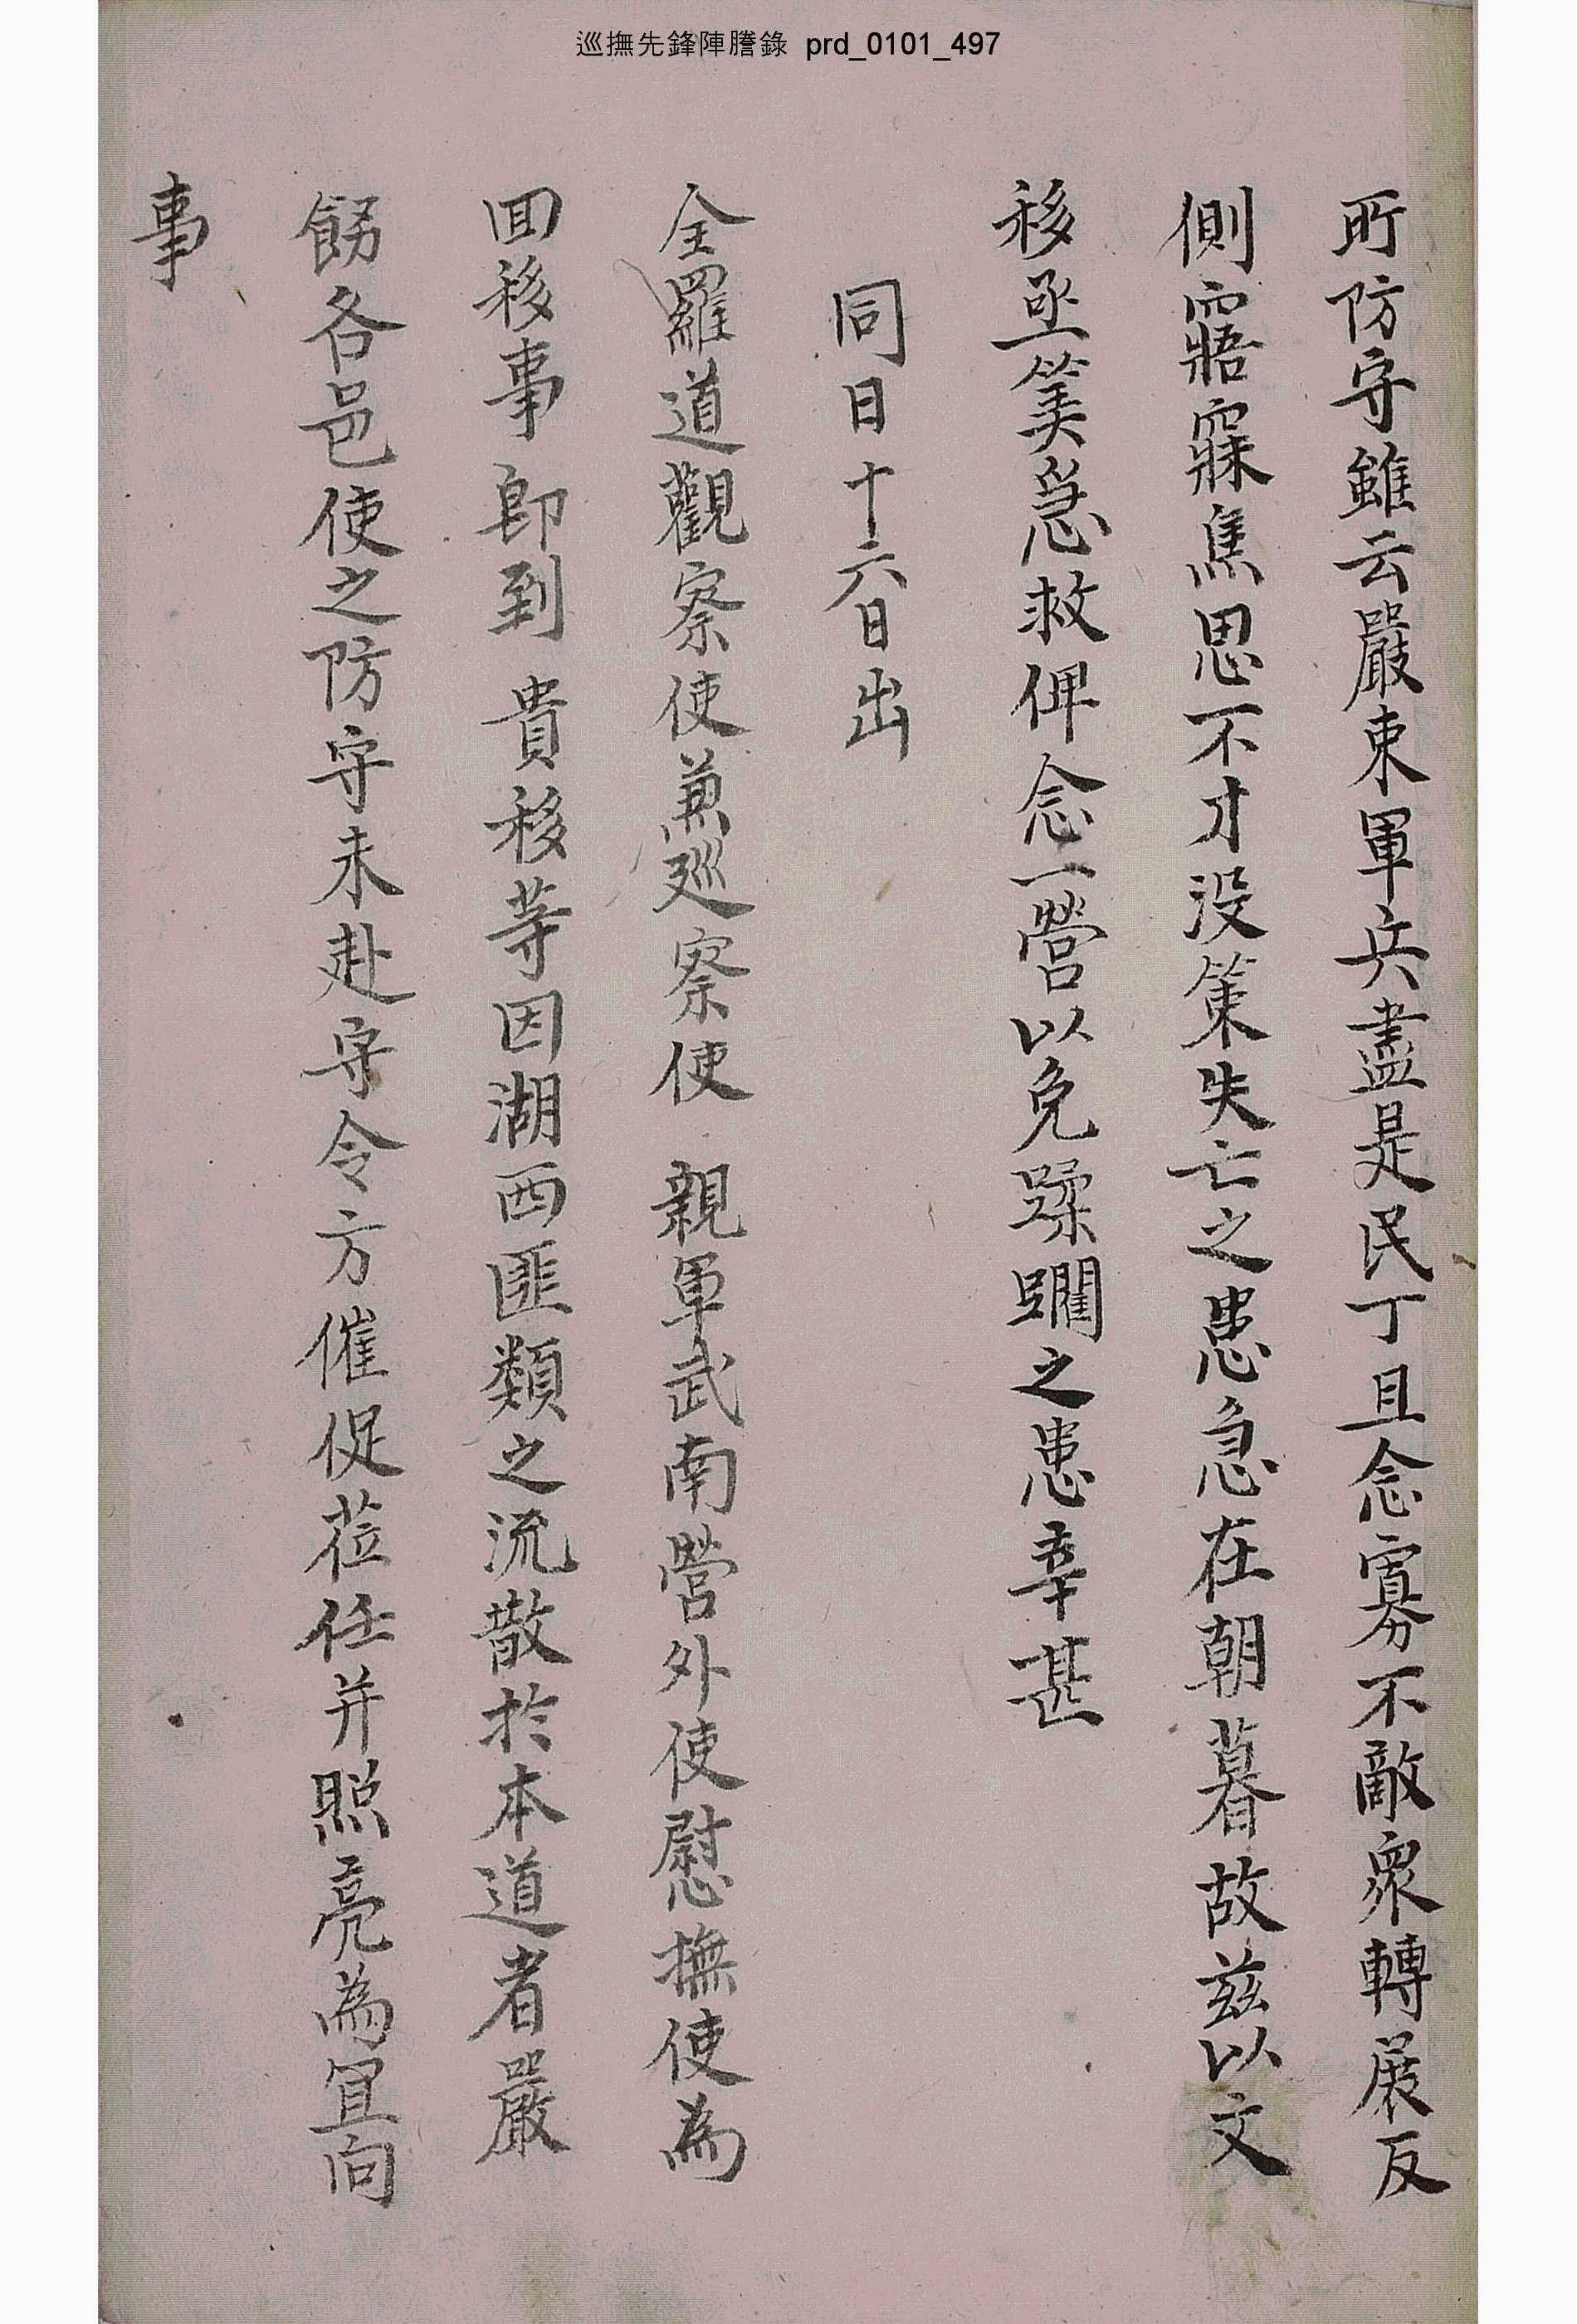 巡撫先鋒陣謄錄 prd_0101_497
所防守雖云嚴束軍兵盡是民丁且念寡不敵衆轉展反
側寤寐焦思不才没策失亡之患急在朝暮故兹以文
移亟筭急救俾念一營以免蹂躪之患幸甚
同日十六日出
全羅道觀察使兼廵察使 親軍武南營外使慰撫使為
回移事卽到 貴移等因湖西匪類之流散於本道者嚴
飭各邑使之防守未赴守令方催促莅任并照亮為冝向
事